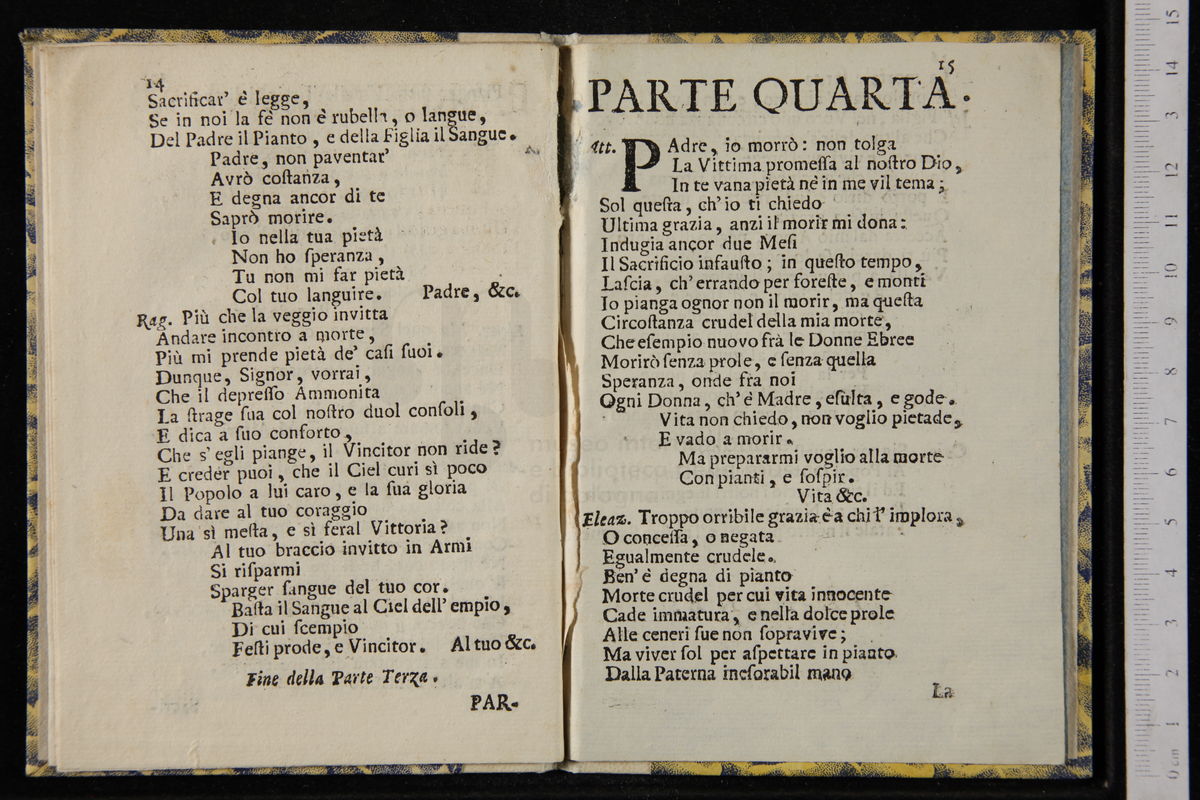 14
Sacrificar' è legge,
Se in noi la fè non è rubella, o langue,
Del Padre il Pianto, e della Figlia il Sangue.
Padre, non paventar'
Avrò coſtanza,
E degna ancor di te
Saprò morire.
Io nella tua pietà
Non ho ſperanza,
Tu non mi far pietà
Col tuo languire. Padre, &c.
Rag. Più che la veggio invitta
Andare incontro a morte,
Più mi prende pietà de' caſi ſuoi.
Dunque, Signor, vorrai,
Che il depreſſo Ammonita
La ſtrage ſua col noſtro duol conſoli,
E dica a ſuo conforto,
Che s' egli piange, il Vincitor non ride?
E creder puoi, che il Ciel curi sì poco
Il Popolo a lui caro, e la ſua gloria
Da dare al tuo coraggio
Una sì meſta, e sì feral Vittoria?
Al tuo braccio invitto in Armi
Si riſparmi
Sparger ſangue del tuo cor.
Baſta il Sangue al Ciel dell' empio,
Di cui ſcempio
Feſti prode, e Vincitor. Al tuo &c.
Fine della Parte Terza.
PAR-
15
PARTE QUARTA.
Att. PAdre, io morrò: non tolga
La Vittima promeſſa al noſtro Dio,
In te vana pietà nè in me vil tema;
Sol queſta, ch' io ti chiedo
Ultima grazia, anzi il morir mi dona:
Indugia ancor due Meſi
Il Sacrificio infauſto; in queſto tempo,
Laſcia, ch' errando per foreſte, e monti
Io pianga ognor non il morir, ma queſta
Circoſtanza crudel della mia morte,
Che eſempio nuovo frà le Donne Ebree
Morirò ſenza prole, e ſenza quella
Speranza, onde fra noi
Ogni Donna, ch' è Madre, eſulta, e gode.
Vita non chiedo, non voglio pietade,
E vado a morir.
Ma prepararmi voglio alla morte
Con pianti, e ſoſpir.
Vita &c.
Eleaz. Troppo orribile grazia è a chi l' implora,
O conceſſa, o negata
Egualmente crudele.
Ben' è degna di pianto
Morte crudel per cui vita innocente
Cade immatura, e nella dolce prole
Alle ceneri ſue non ſopravive;
Ma viver ſol per aſpettare in pianto
Dalla Paterna ineſorabil mano
La